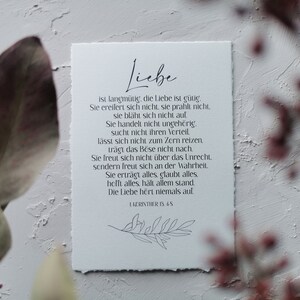 Liebe
ist langmütig, die Liebe ist gütig.
Sie ereifert sich nicht, sie prahlt nicht,
sie bläht sich nicht auf.
Sie handelt nicht ungehörig,
sucht nicht ihren Vorteil,
lässt sich nicht zum Zorn reizen,
trägt das Böse nicht nach.
Sie freut sich nicht über das Unrecht,
sondern freut sich an der Wahrheit.
Sie erträgt alles, glaubt alles,
hofft alles, hält allem stand.
Die Liebe hört niemals auf.
1. KORINTHER 13, 4-8